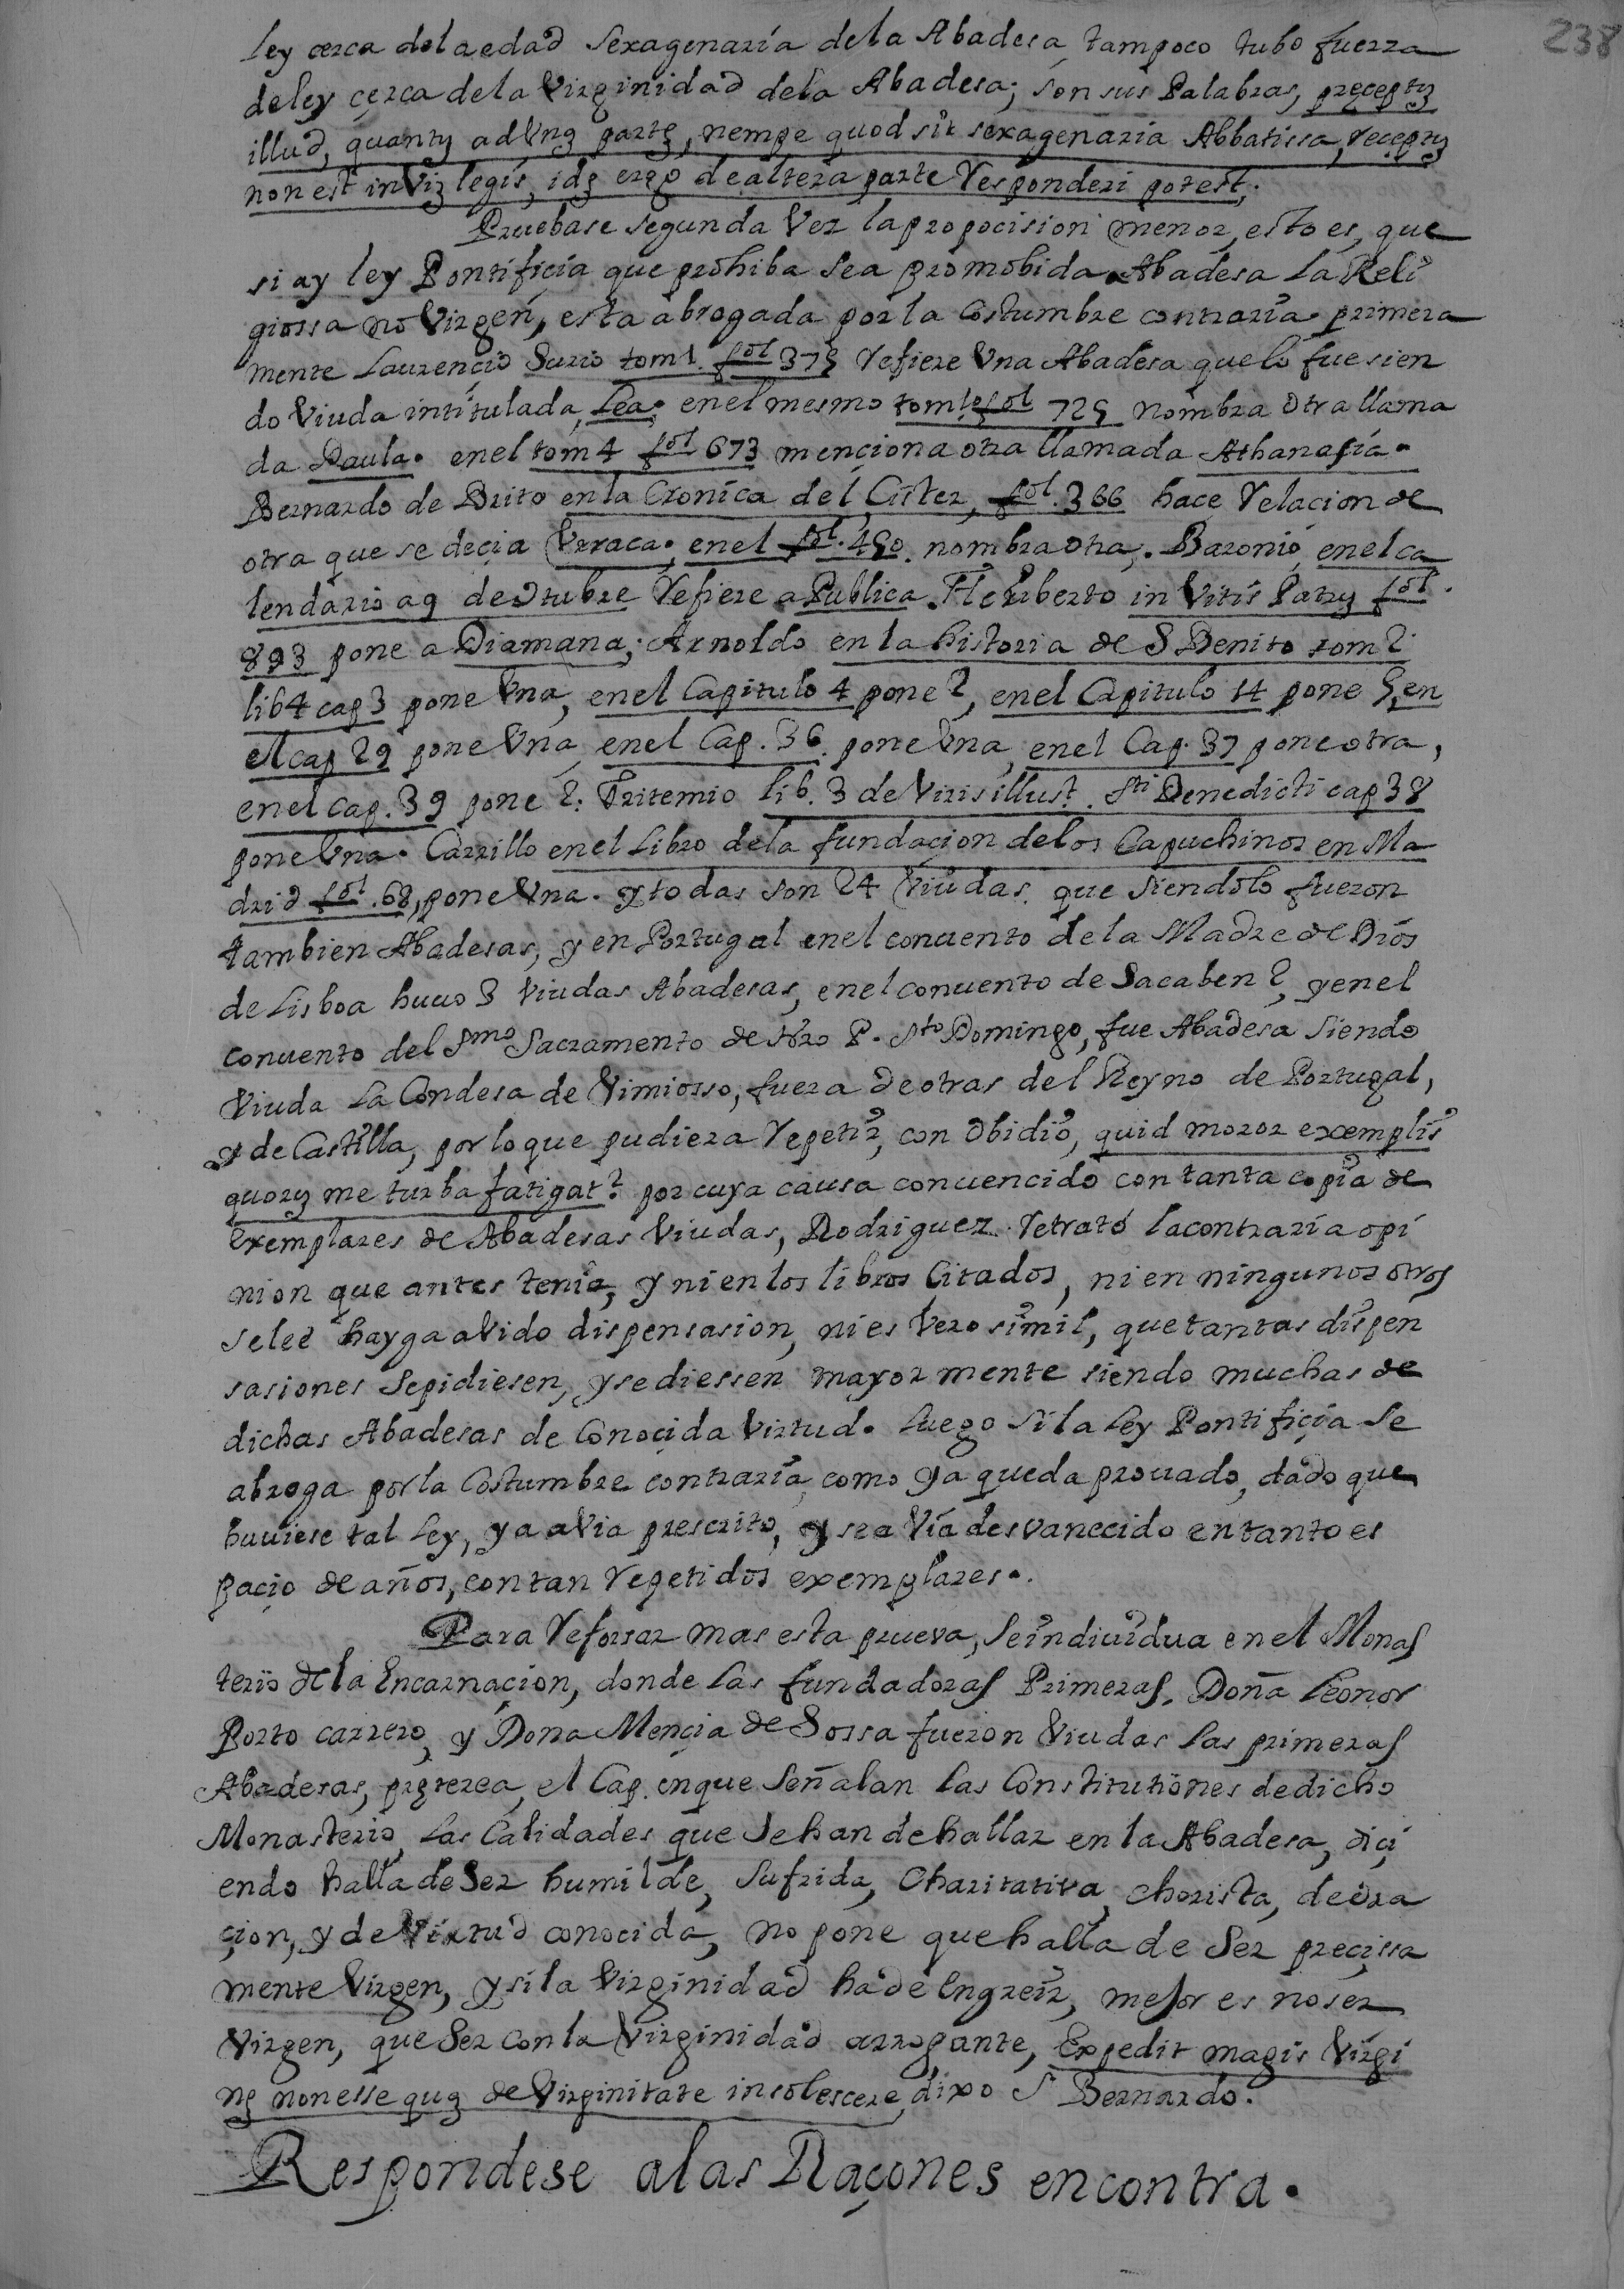 238
ley cerca dela edad sexagenaría dela Abadesa tampoco tubo fuerza
deley çerca dela Virginidad dela Abadesa; son sus Palabras, preceptų
illud, quantų ad Vnę partę, nempe quod sit sexagenaria Abbatissa, receptų
non est in Vię legis, idę ergo de altera parte responderi potest;
Pruebase segunda Vez la propocision menor, esto es, que
si ay ley Pontifiçia que prohiba sea promobida Abadesa La Reli
giossa no Virgen, esta abrogada por la Costumbre contraria. primera
mente Laurençio Surio tom 1. fol 375 refiere Vna Abadesa que lo fue sien
do Viuda intitulada, Lea. en el mesmo tom 1. fol 725 nombra otra llama
da Paula. en el tom 4 fol 673 mençiona otra llamada Athanasía.
Bernardo de Brito en la Cronica del Cister, fol. 366 hace relacion de
otra que se deçia Vrraca. en el fol. 450. nombra otra. Baronio en el ca
lendario a 9 de otubre refiere a Publica. Heriberto in Vitis Patrų fol.
893 pone a Diamana; Arnoldo en la historia de S Benito tom 2
lib 4 cap 3 pone Vna, en el Capitulo 4 pone 2, en el Capitulo 14 pone 5, en
el cap 29 pone Vna, en el Cap. 36. pone Vna, en el Cap. 37 pone otra,
en el cap. 39 pone 2. Tritemio lib. 3 de Viris illust. Sti Benedicti cap 38
pone Vna. Carrillo en el Libro dela fundaçion delos Capuchinos en Ma
drid fol. 68, pone Vna. y todas son 24 Viudas. que siendolo fueron
tambien Abadesas, y en Portugal en el conuento de la Madre de Dios
de Lisboa huuo 3 Viudas Abadesas, en el conuento de Sacaben 2, y en el
conuento del Smo Sacramento de Nro P. Sto Domingo, fue Abadesa siendo
Viuda La Condesa de Vimiosso, fuera de otras del Reyno de Portugal,
y de Castilla, por lo que pudiera repetir, con Obidio, quid moror exemplis
quorų me turba fatigat? por cuya causa conuencido con tanta copia de
exemplares de Abadesas Viudas, Rodriguez retrató la contraria opi
nion que antes tenia, y ni en los libros Çitados, ni en ningunos otros
se lee hayga avido dispensasion, ni es Verosimil, que tantas dispen
sasiones se pidiesen, y se diessen mayormente siendo muchas de
dichas Abadesas de Conoçida Virtud. Luego si la Ley Pontifiçia se
abroga por la Costumbre contraria, como ya queda prouado, dado que
huuiese tal Ley, ya avia prescrito, y se avía desvanecido en tanto es
paçio de años, con tan repetidos exemplares.
Para reforsar mas esta prueva, se indiuidua en el Monas
terio de la Encarnaçion, donde las fundadoras Primeras, Doña Leonor
Porto carrero, y Dona Mençia de Sossa fueron Viudas las primeras
Abadesas, pręterea, el Cap. en que señalan las Constitutiones de dicho
Monasterio, las Calidades que se han de hallar en la Abadesa, diçi
endo halla de ser humilde, sufrida, Charitativa, chorista, de ora
çion, y de Virtud conocida, no pone que halla de ser preçissa
mente Virgen, y si la Virginidad ha de engreir, mejor es no ser
Virgen, que ser con la Virginidad arrogante, Expedit magis Virgi
nę non esse quą de Virginitate insolescere, dixo S Bernardo.
Respondese a las Raçones en contra.